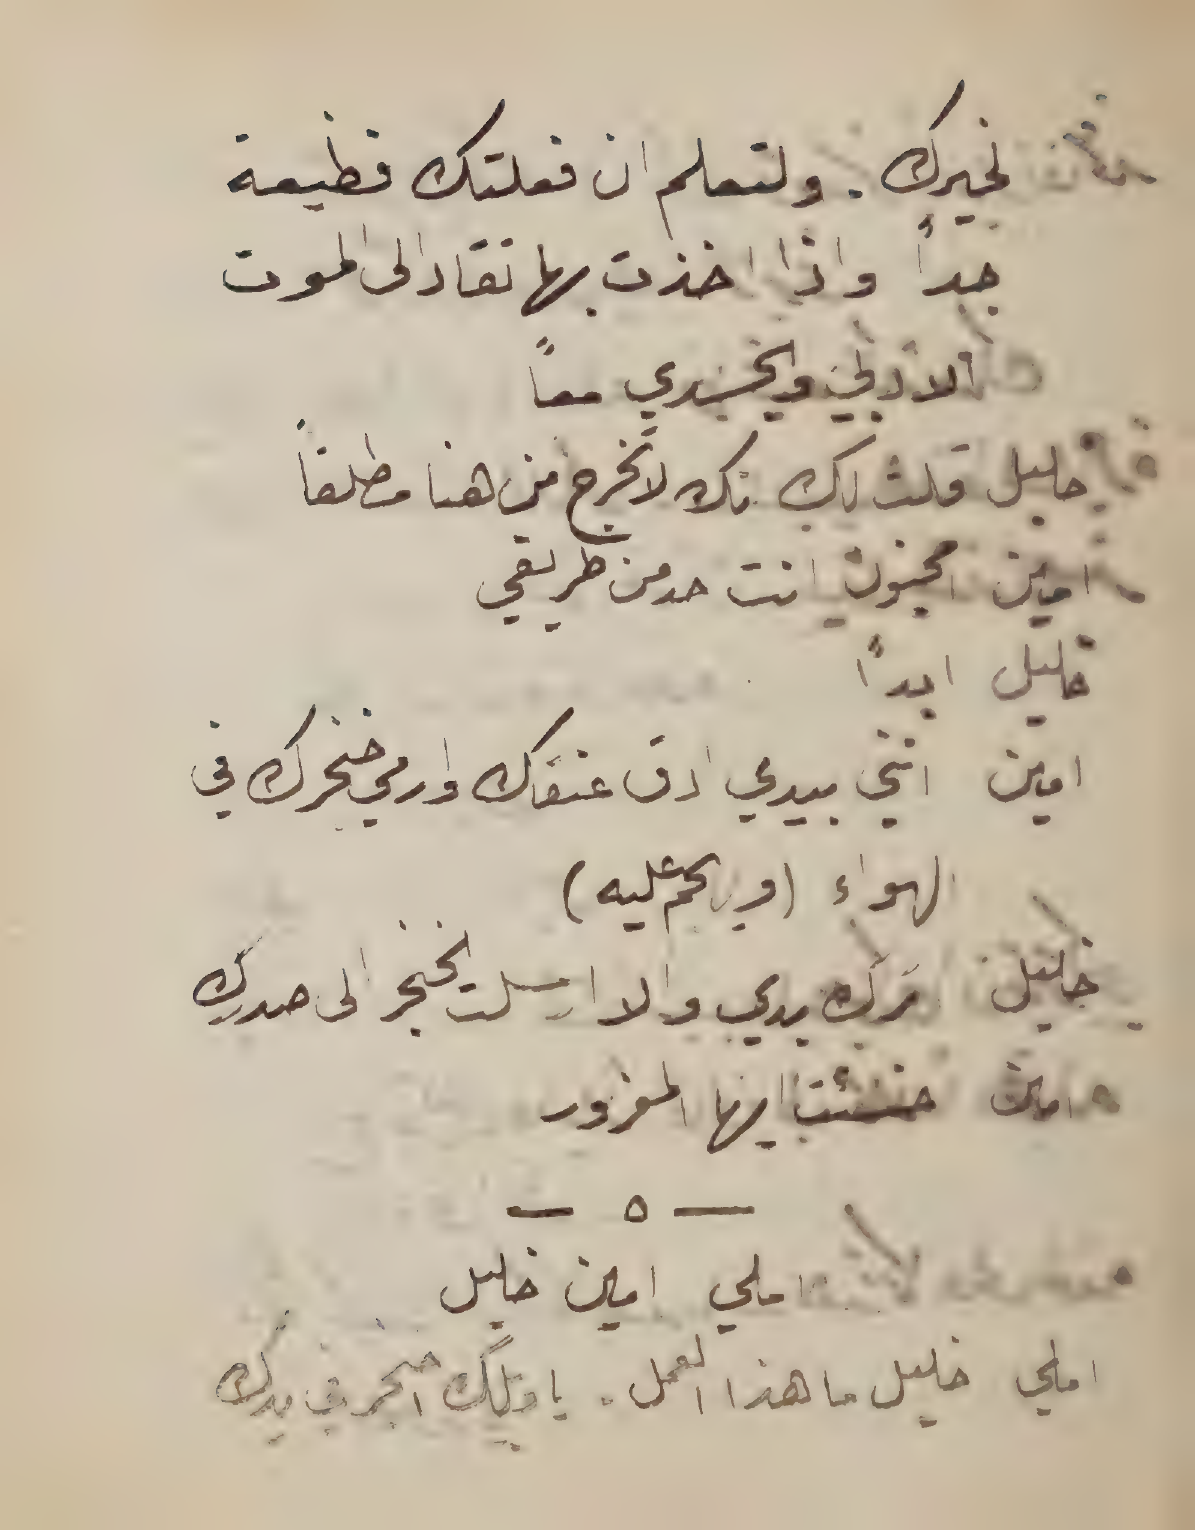 لخيرك. ولتعلم ان فعلتك فظيعة
جداً واذا اخذت بها تقاد الى الموت
الادبي والجسدي معاً
خليل قلت لك انك لا تخرج من هنا مطلقاً
امين امجنون انت حد من طريقي
خليل ابداً
امين انني بيدي ادق عنقك وارمي خنجرك في
الهواء (ويهجم عليه)
خليل اترك يدي والا ارسلت الخنجر الى صدرك
امين خسئت ايها المغرور
— ٥ —
املي امين خليل
املي خليل ما هذا العمل. يا ويلك اخنجر في يدك